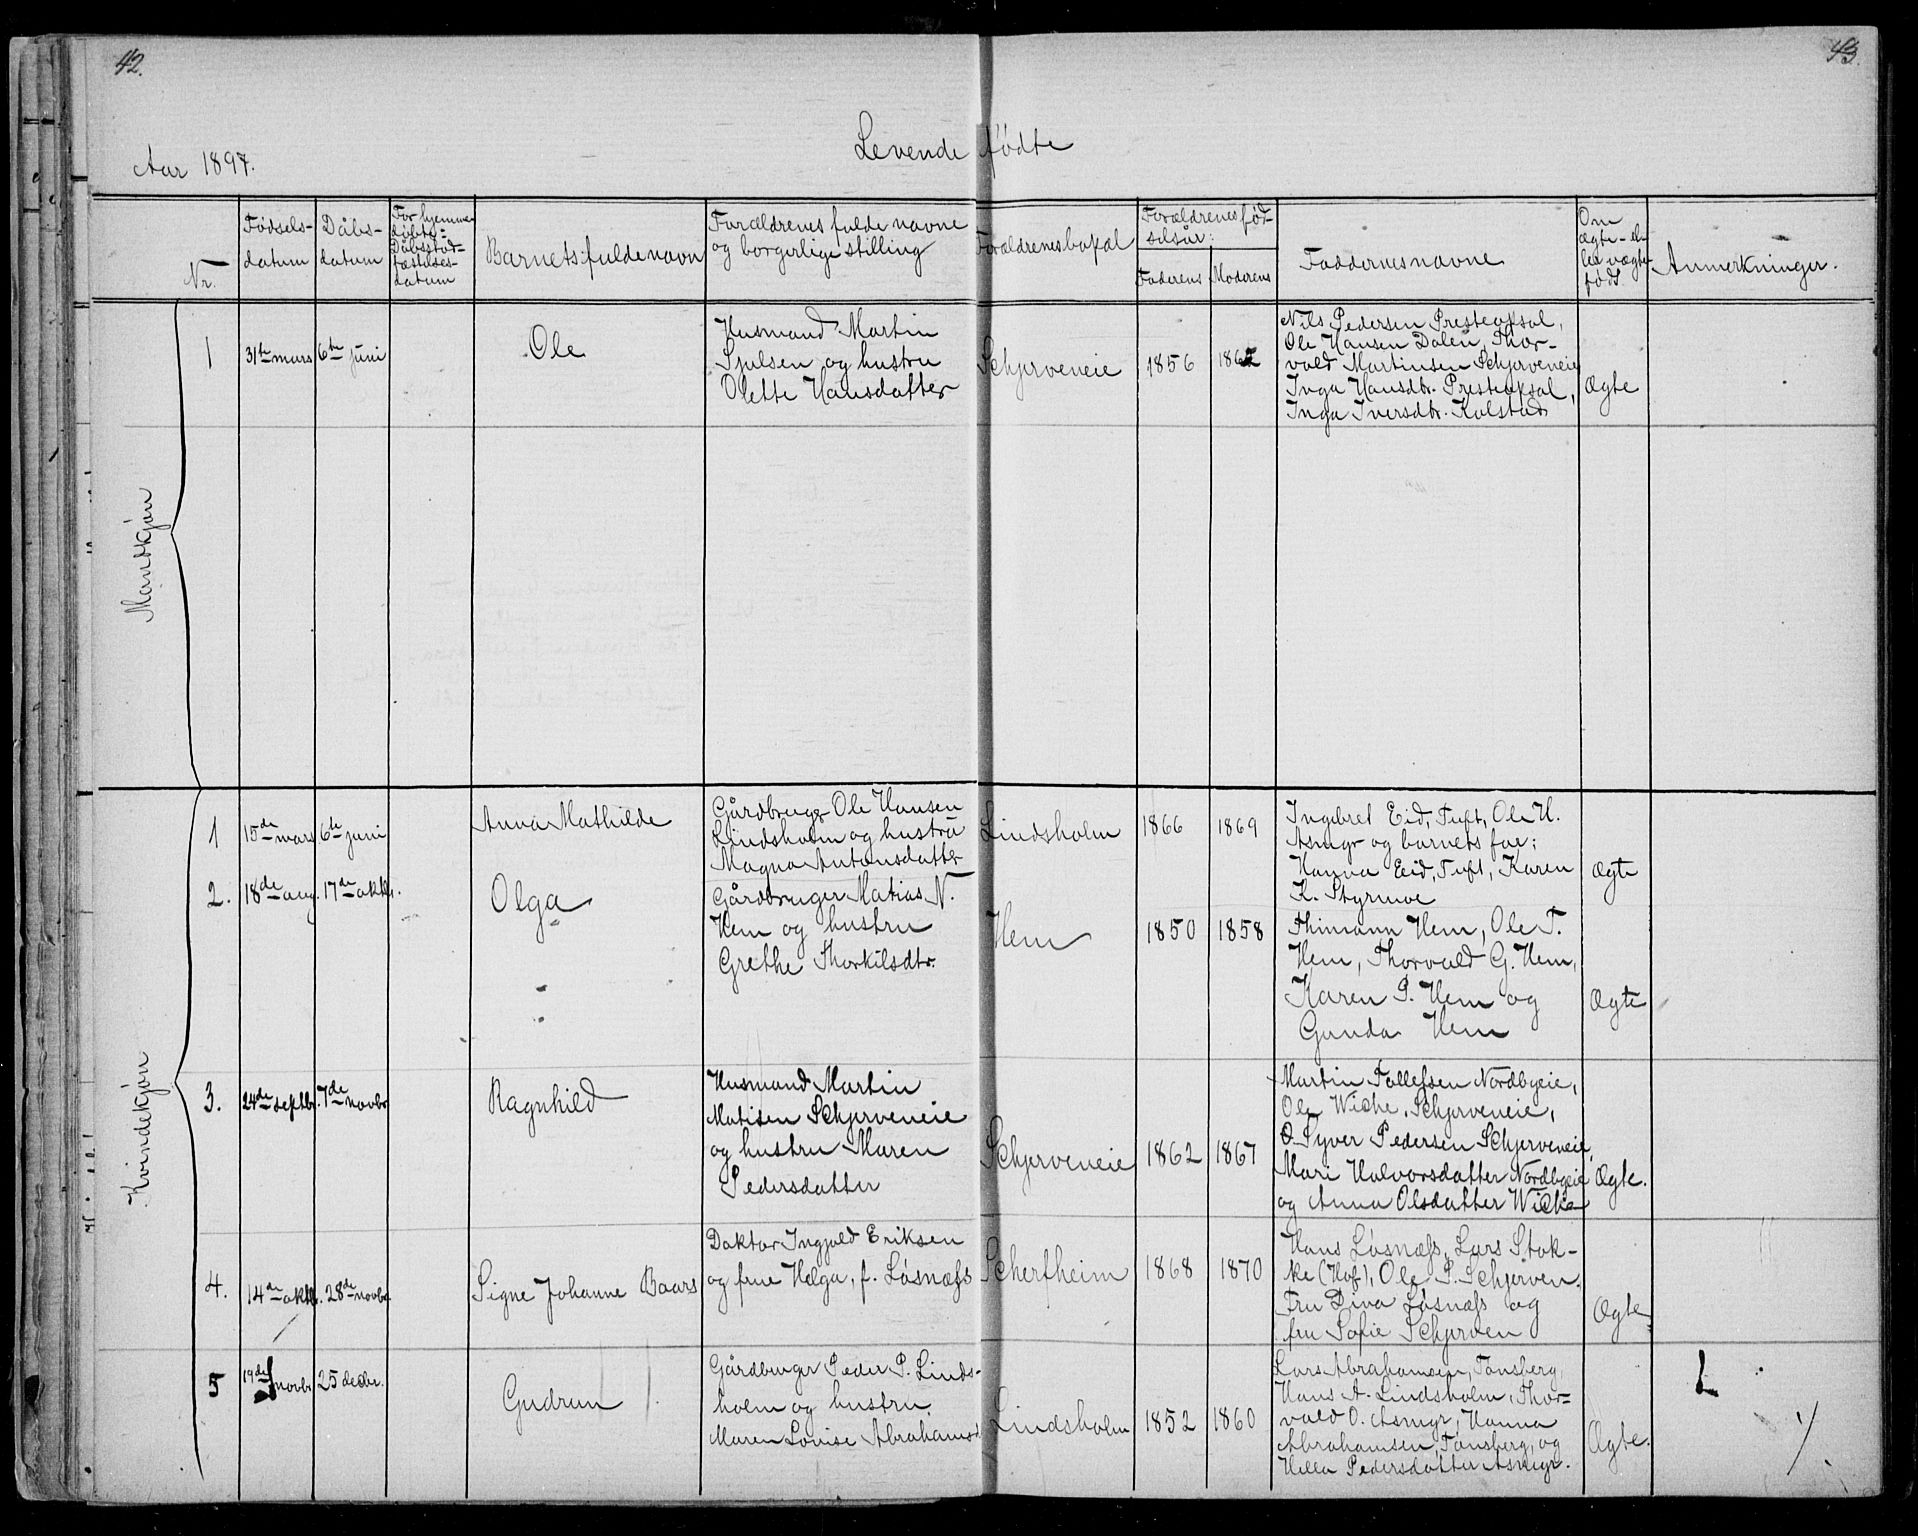 42.
43.
Levende fødte
Aar 1897.
Nr.
Fødsels-
datum
Dåbs-
datum
For hjemme-
døbte:
Dåbsstad-
fæstelses-
datum
Barnets fulde navn
Forældrenes fulde navne
og borgerlige stilling
Forældrenes bopæl
Forældrenes fød-
selsår:
Faderens
Moderens
Faddernes navne
Om
ægte- el-
ler uægte
født
Anmerkninger.
Mandkjøn
1
31te mars
6te juni
Ole
Husmand Martin
og hustru
Olette Hansdatter
Schjerveneie
1856
1862
Nils Pedersen Presteopsal,
Ole Hansen Dalen, Thor-
vald Martinsen Schjerveneie
Inga Hansdtr. Presteopsal,
Inga Iversdtr. Kolstad
Ægte
Kvindekjøn
1
15de mars
6te juni
Anna Mathilde
Gårdbruger Ole Hansen
Lindsholm og hustru
Magna Antonsdatter
Lindsholm
1866
1869
Ingebret Eid, Tuft, Ole H.
Asmyr og barnets far;
Hanna Eid, Tuft, Karen
K. Styrmoe
Ægte
2.
18de aug.
17de oktbr.
Olga
Gårdbruger Matias N.
Hem og hustru
Grethe Thorkilsdtr.
Hem
1850
1858
Thimann Hem, Ole T.
Hem, Thorvald G. Hem,
Karen P. Hem og
Gunda Hem
Ægte
3.
24de septbr.
7de novbr
Ragnhild
Husmand Martin
Matisen Schjerveneie
og hustru Maren
Pedersdatter
Schjerveneie
1862
1867
Martin Tollefsen Nordbyeie,
Ole Wiche, Schjerveneie,
O. Syver Pedersen Schjerveneie,
Mari Halvorsdatter Nordbyeie
og Anna Olsdatter Wiche
Ægte.
4.
14de oktbr.
28de novbr.
Signe Johanne Baars
Doktor Ingjald Eriksen
og frue Helga, f. Løsnæss
Scherfheim
1868
1870
Hans Løsnæss, Lars Stok-
ke (Hof), Ole P. Schjerven.
Fru Diva Løsnæss og
fru Sofie Schjerven
Ægte
5
19de novbr
25 decbr.
Gudrun
Gårdbruger Peder P. Linds-
holm og hustru
Maren Lovise Abrahamsd.
Lindsholm
1852
1860
Lars Abrahamsen, Tønsberg,
Hans A. Lindsholm, Thor-
vald O. Asmyr, Hanna
Abrahamsen, Tønsberg, og
Hella Pedersdatter Asmyr.
Ægte.